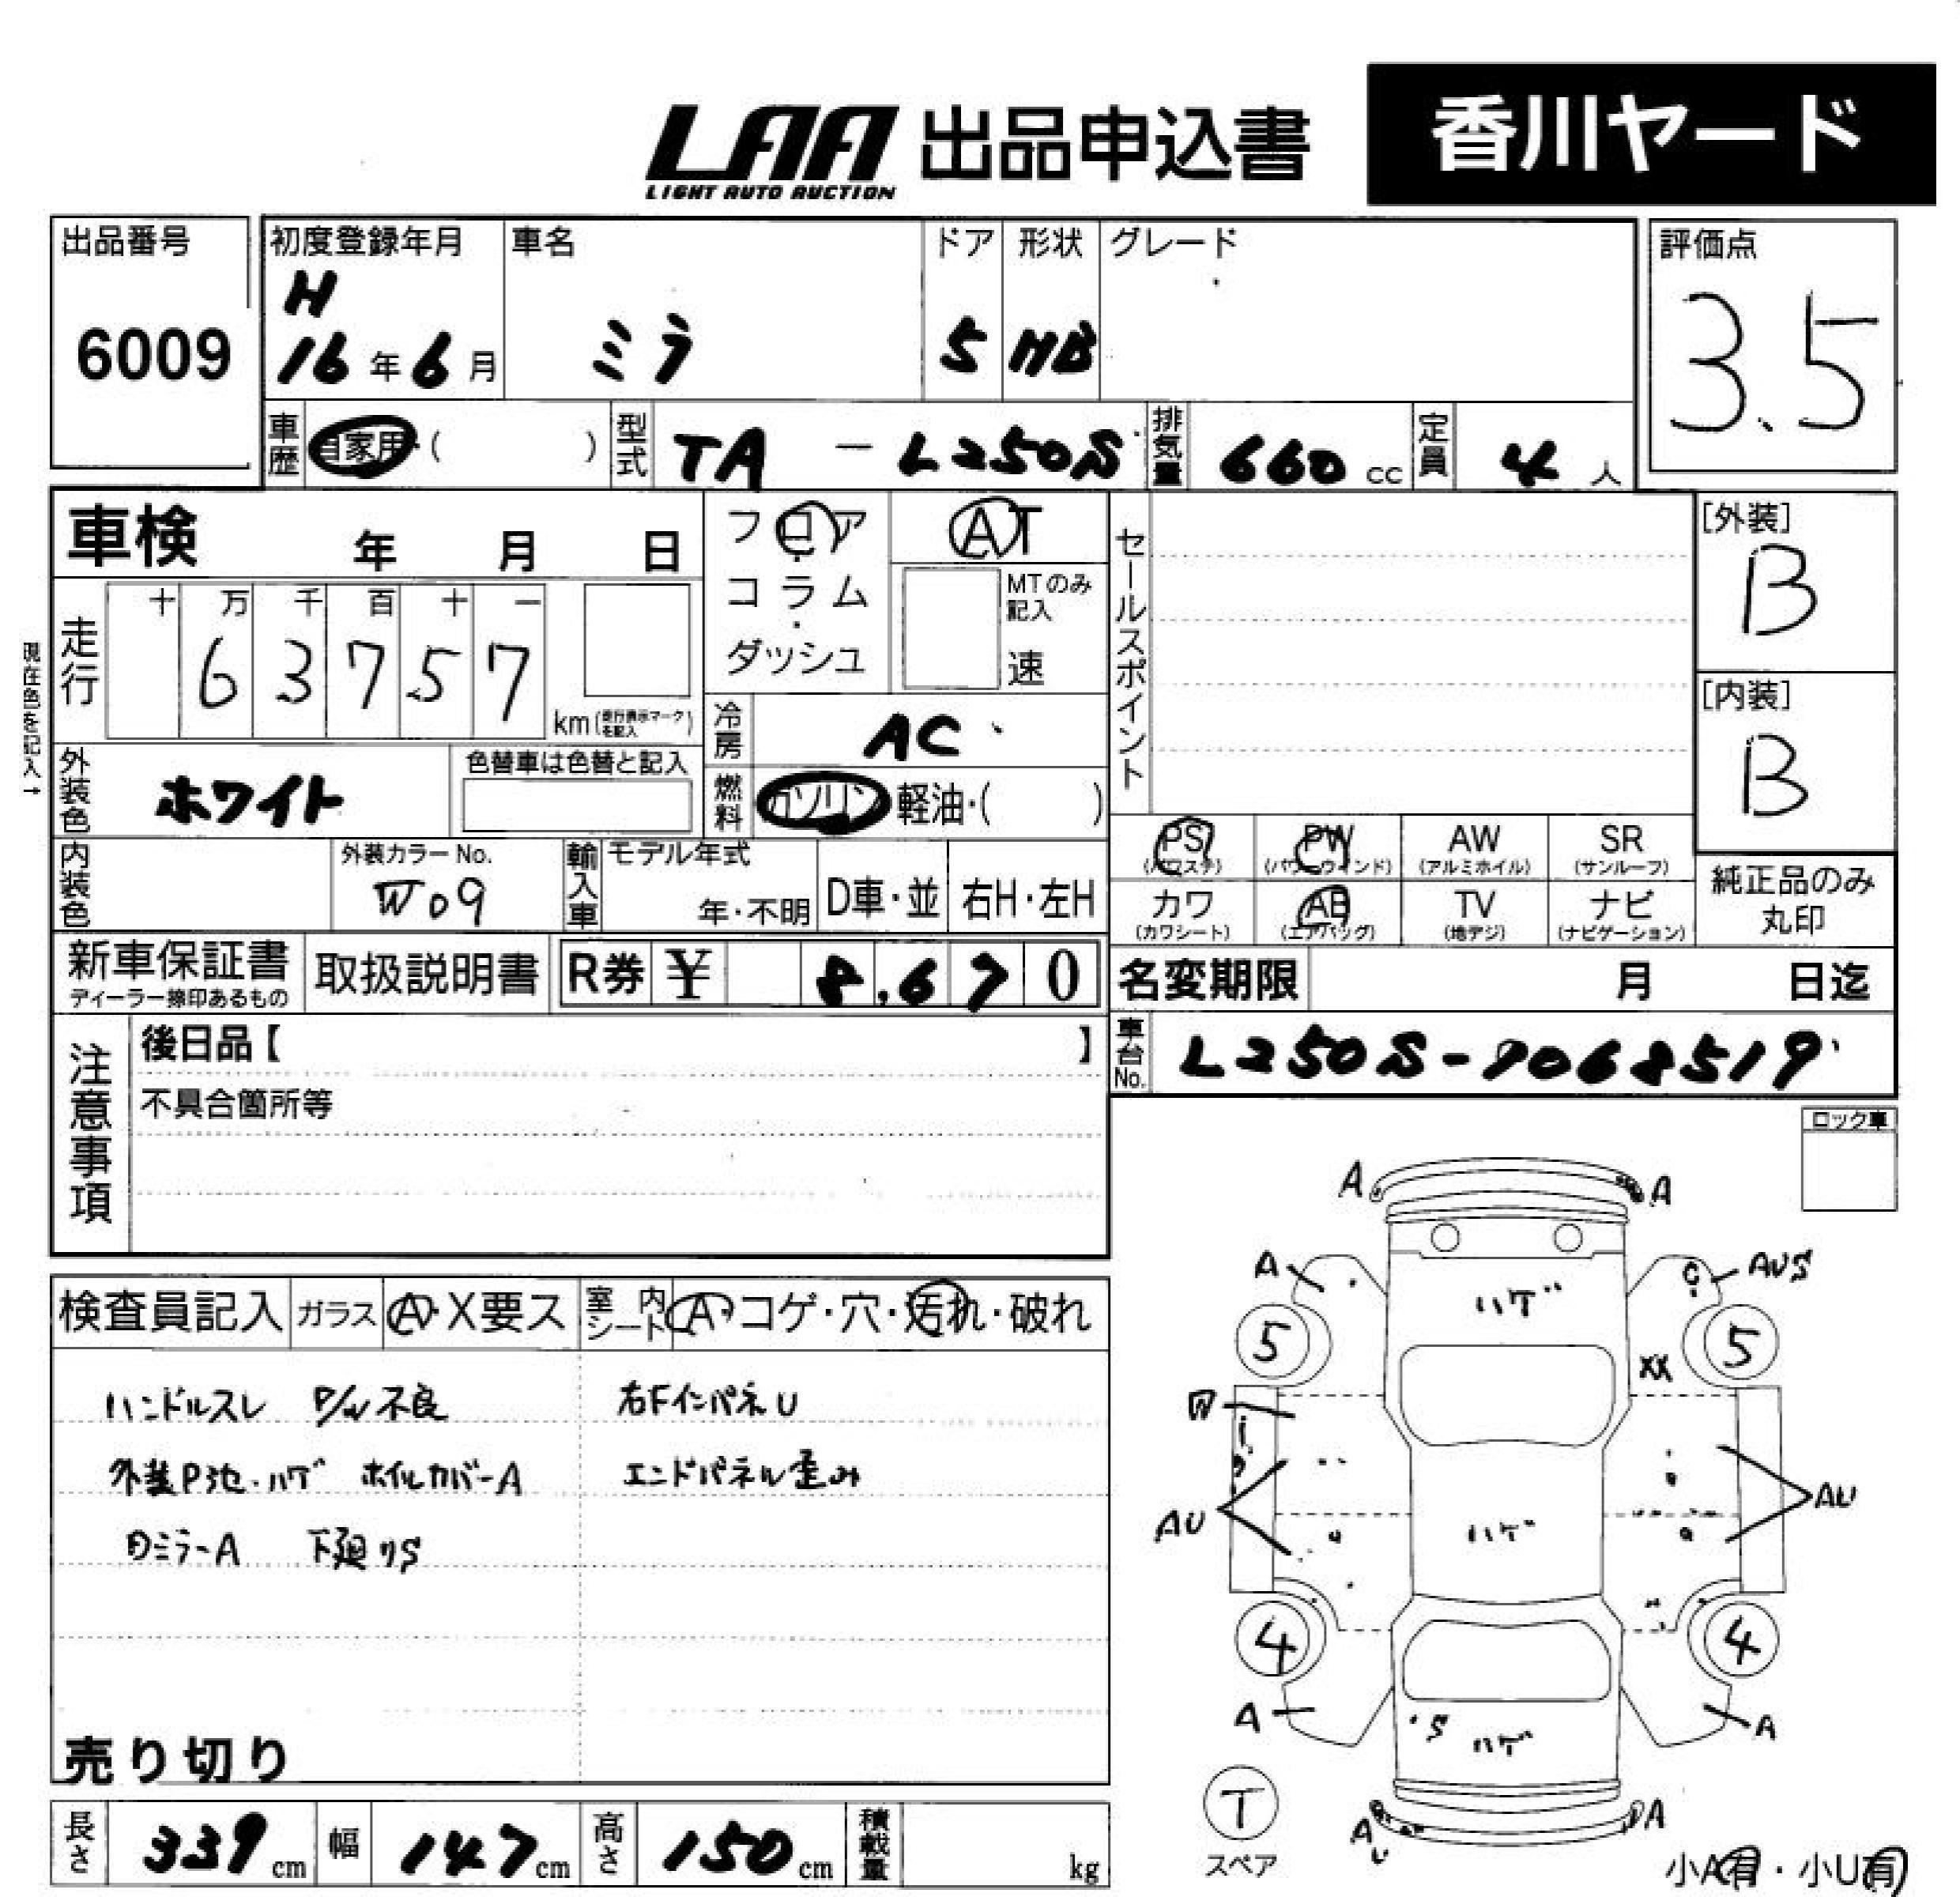 LAA 出品申込書 香川ヤード
LIGHT AUTO AUCTION
出品番号 初度登録年月 車名 ドア 形状 グレード 評価点
6009 H 16年6月 ミラ 5 HB 3.5
車歴 自家用・( ) 型式 TA - L250S 排気量 660 cc 定員 4 人
車検 年 月 日 フロア・コラム・ダッシュ AT セールスポイント [外装] B
MTのみ記入 速
走行 十 万 千 百 十 一
6 3 7 5 7 km(走行表示マークを記入)
現在色を記入→
[内装] B
冷房 AC
外装色 ホワイト 色替車は色替と記入 燃料 ガソリン・軽油・( )
PS(パワステ) PW(パワーウインド) AW(アルミホイル) SR(サンルーフ)
カワ(カワシート) AB(エアバッグ) TV(地デジ) ナビ(ナビゲーション) 純正品のみ丸印
内装色 外装カラーNo. W09 輸入車 モデル年式 年・不明 D車・並 右H・左H
新車保証書 ディーラー捺印あるもの 取扱説明書 R券 ¥ 8,670 名変期限 月 日迄
注意事項 後日品【 】
不具合箇所等
車台No. L250S-
ロック車
検査員記入 ガラス A・X要ス 室内シート A・コゲ・穴・汚れ・破れ
ハンドルスレ P/W不良 右FインパネU
外装P池・ハゲ ホイルカバーA エンドパネル歪み
ミラーA 下廻りS
売り切り
A A
A AUS
ハゲ
5 5
XX
W
AU AU
ハゲ
4 4
A A
S ハゲ
T
スペア
A U A
小A有・小U有
長さ 339 cm 幅 147 cm 高さ 150 cm 積載量 kg